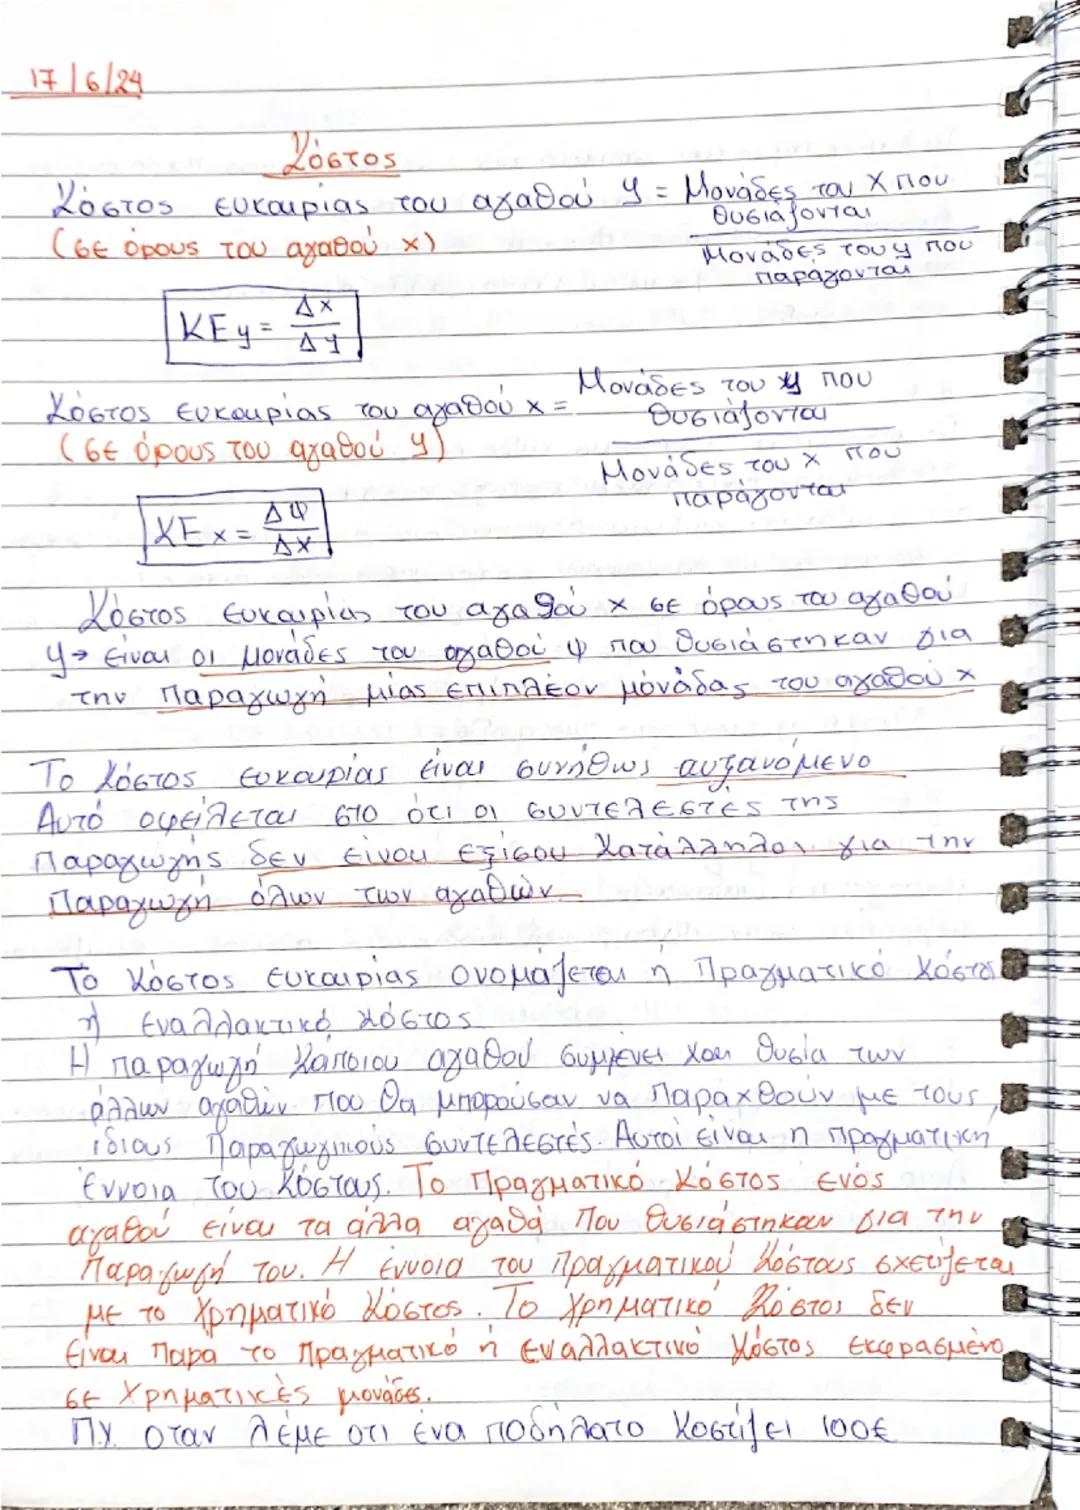 17/6/24
Κόστος
Κόστος ευκαιρίας του αγαθού y = Μονάδες του X που θυσιάζονται
(σε όρους του αγαθού x)
Μονάδες του y που παράγονται
ΚΕy = Δx
Δy
Κόστος ευκαιρίας του αγαθού x = Μονάδες του y που θυσιάζονται
(σε όρους του αγαθού y)
Μονάδες του x που παράγονται
ΚΕx = ΔΨ
Δx
Κόστος ευκαιρίας του αγαθού x σε όρους του αγαθού
y → είναι οι μονάδες του αγαθού ψ που θυσιάστηκαν για
την παραγωγή μίας επιπλέον μόνάδας του αγαθού x
Το κόστος ευκαιρίας είναι συνήθως αυξανόμενο
Αυτό οφείλεται στο ότι οι συντελεστές της
παραγωγής δεν είναι εξίσου κατάλληλοι για την
Παραγωγή όλων των αγαθών.
Το κόστος ευκαιρίας ονομάζεται ή Πραγματικό κόστος
ή εναλλακτικό κόστος
Η παραγωγή κάποιου αγαθού και θυσία των
άλλων αγαθών που θα μπορούσαν να παραχθούν με τους
ίδιους παραγωγικούς συντελεστές. Αυτοί είναι η πραγματική
έννοια του κόστους. Το Πραγματικό κόστος ενός
αγαθού είναι τα άλλα αγαθά που θυσιάστηκαν για την
Παραγωγή του. Η έννοια του Πραγματικού κόστους σχετίζεται
με το χρηματικό κόστος. Το χρηματικό κόστος δεν
είναι παρά το πραγματικό ή εναλλακτικό κόστος εκφρασμένο
σε χρηματικές μονάδες.
Π.χ. όταν λέμε οτι ένα ποδήλατο κοστίζει 100€